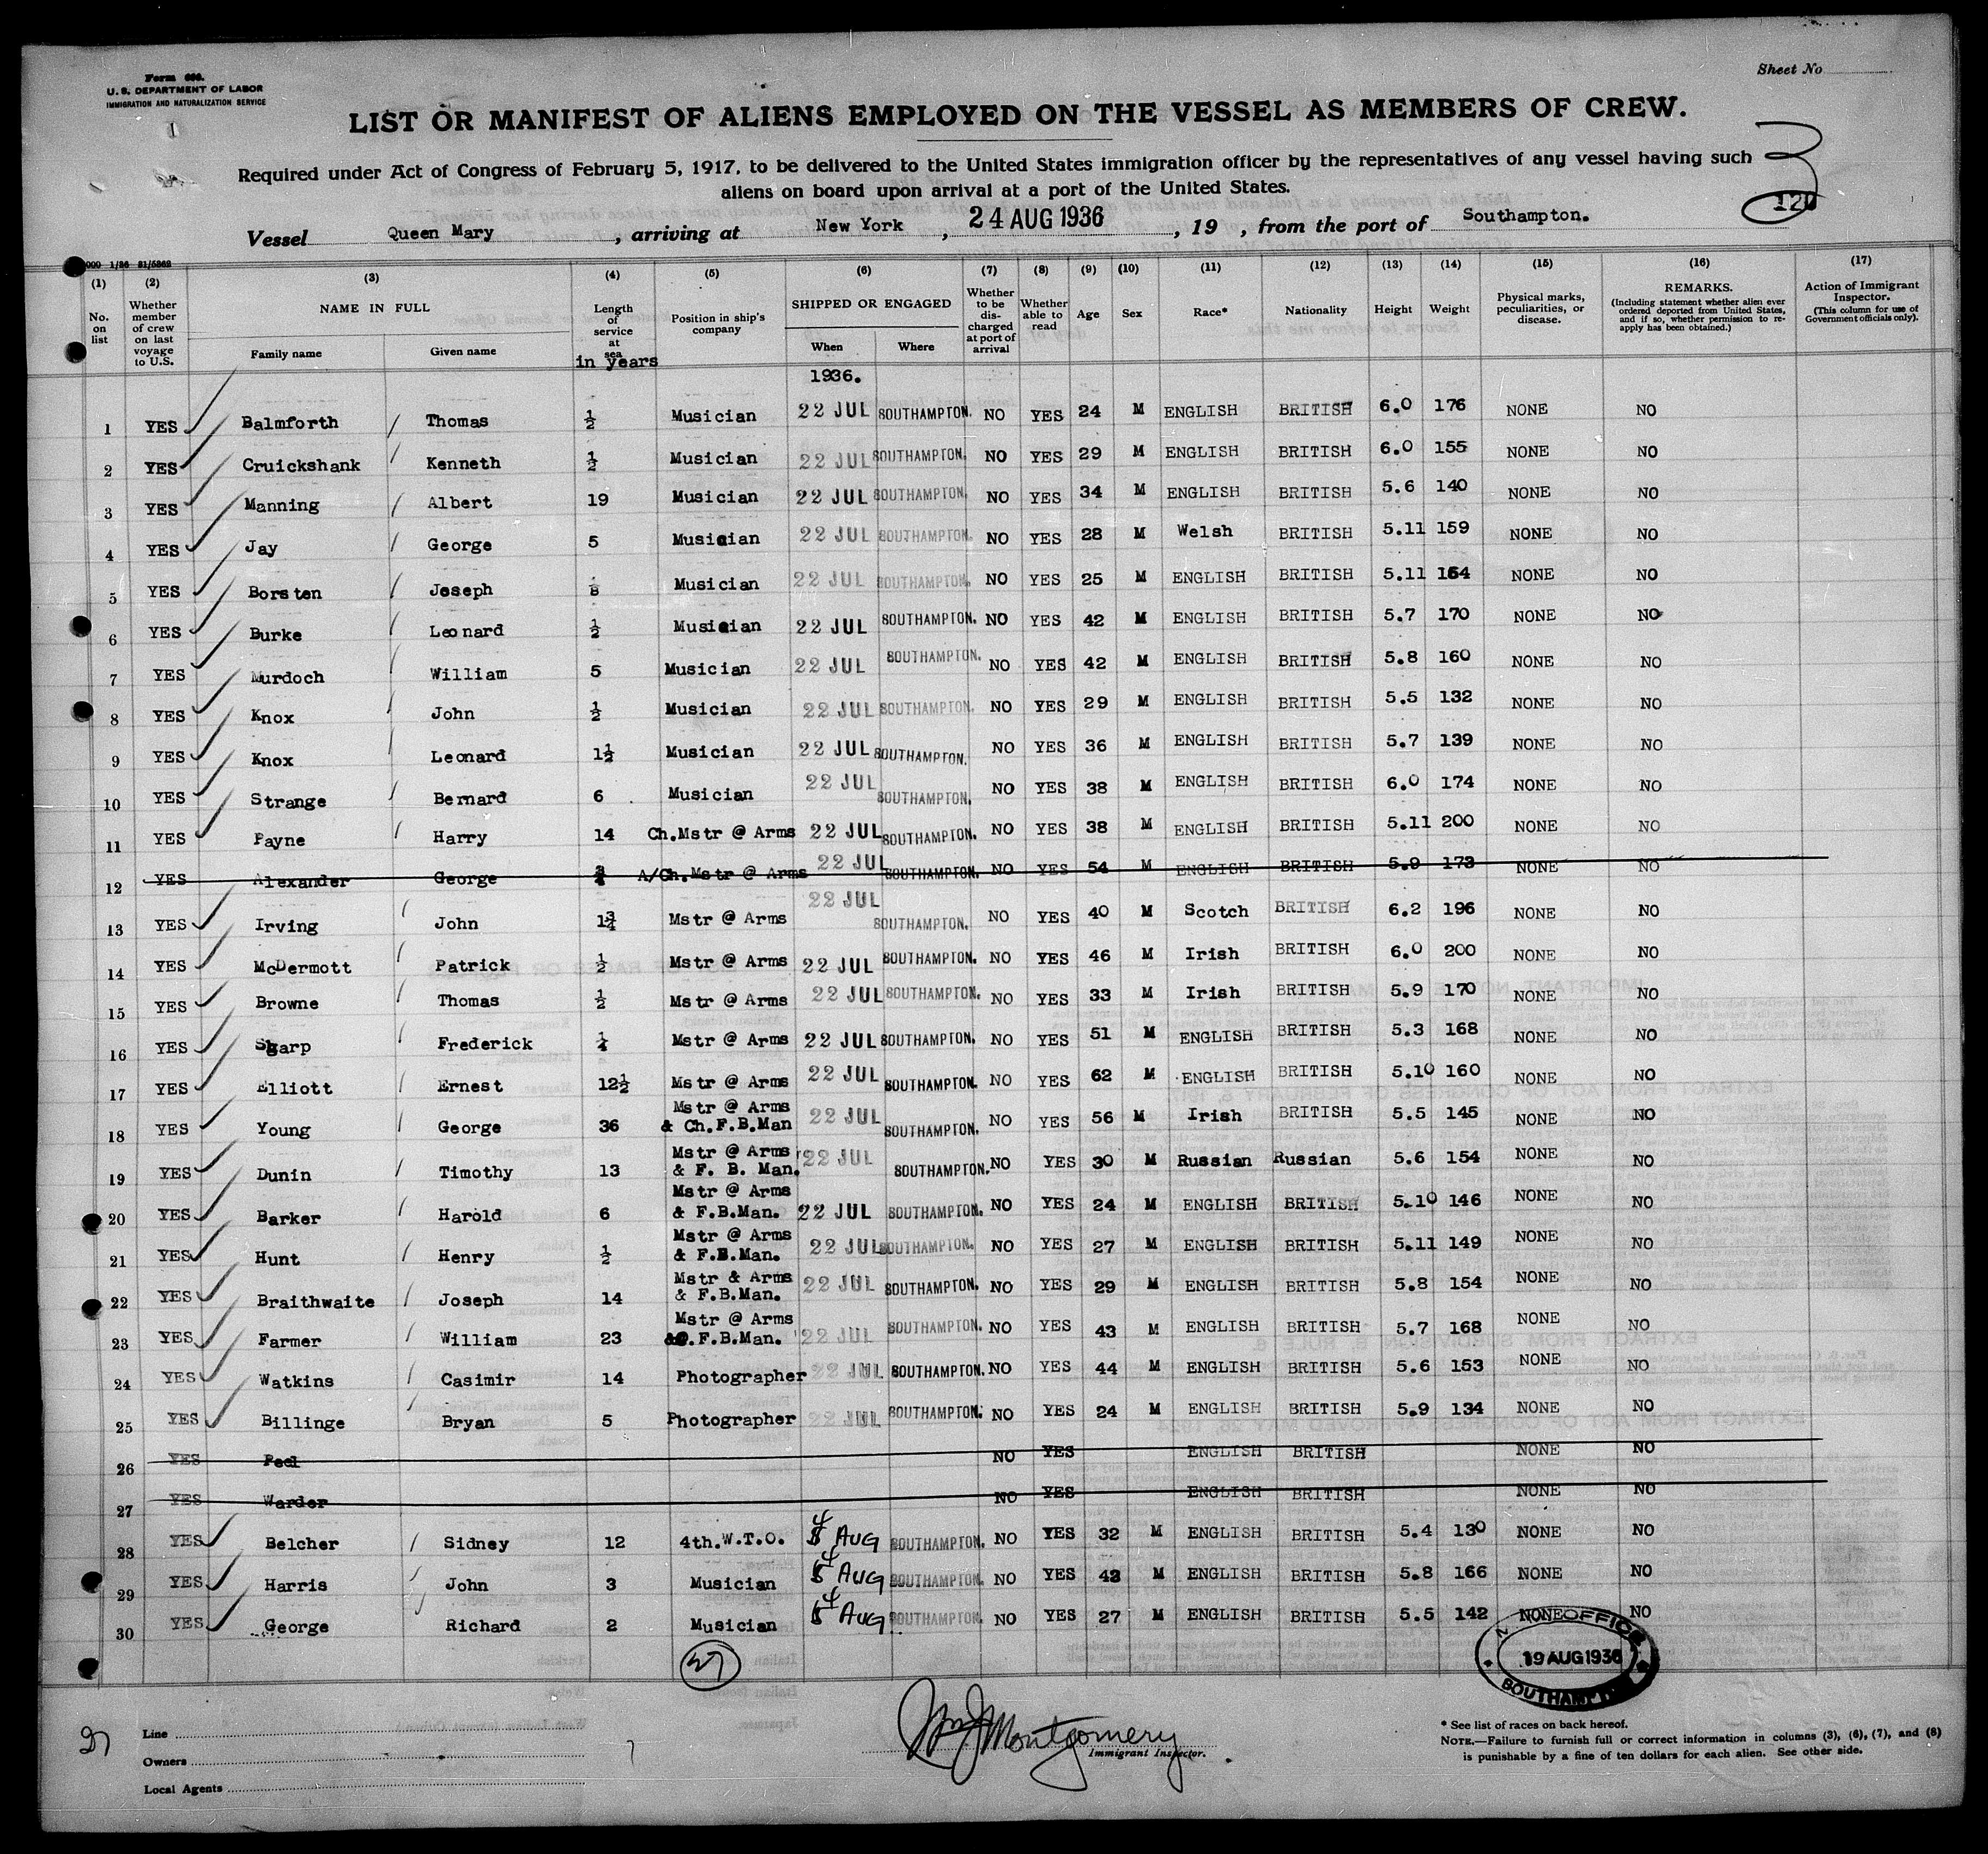 Form 686.
U. S. DEPARTMENT OF LABOR
IMMIGRATION AND NATURALIZATION SERVICE
Sheet No
LIST OR MANIFEST OF ALIENS EMPLOYED ON THE VESSEL AS MEMBERS OF CREW.
Required under Act of Congress of February 5, 1917, to be delivered to the United States immigration officer by the representatives of any vessel having such
aliens on board upon arrival at a port of the United States.
3
120
Vessel Queen Mary, arriving at New York, 24 AUG 1936, 19 , from the port of Southampton.
(1) (2) (3) (4) (5) (6) (7) (8) (9) (10) (11) (12) (13) (14) (15) (16) (17)
No. on list
Whether member of crew on last voyage to U.S.
NAME IN FULL
Family name
Given name
Length of service at sea
in years
Position in ship's company
SHIPPED OR ENGAGED
When
Where
Whether to be discharged at port of arrival
Whether able to read
Age
Sex
Race*
Nationality
Height
Weight
Physical marks, peculiarities, or disease.
REMARKS.
(Including statement whether alien ever ordered deported from United States, and if so, whether permission to reapply has been obtained.)
Action of Immigrant Inspector.
(This column for use of Government officials only).
1936.
1 YES Balmforth Thomas ½ Musician 22 JUL SOUTHAMPTON. NO YES 24 M ENGLISH BRITISH 6.0 176 NONE NO
2 YES Cruickshank Kenneth ½ Musician 22 JUL SOUTHAMPTON. NO YES 29 M ENGLISH BRITISH 6.0 155 NONE NO
3 YES Manning Albert 19 Musician 22 JUL SOUTHAMPTON. NO YES 34 M ENGLISH BRITISH 5.6 140 NONE NO
4 YES Jay George 5 Musician 22 JUL SOUTHAMPTON. NO YES 28 M Welsh BRITISH 5.11 159 NONE NO
5 YES Borsten Joseph Musician 22 JUL SOUTHAMPTON. NO YES 25 M ENGLISH BRITISH 5.11 164 NONE NO
6 YES Burke Leonard ½ Musician 22 JUL SOUTHAMPTON. NO YES 42 M ENGLISH BRITISH 5.7 170 NONE NO
7 YES Murdoch William 5 Musician 22 JUL SOUTHAMPTON. NO YES 42 M ENGLISH BRITISH 5.8 160 NONE NO
8 YES Knox John ½ Musician 22 JUL SOUTHAMPTON. NO YES 29 M ENGLISH BRITISH 5.5 132 NONE NO
9 YES Knox Leonard 1½ Musician 22 JUL SOUTHAMPTON. NO YES 36 M ENGLISH BRITISH 5.7 139 NONE NO
10 YES Strange Bernard 6 Musician 22 JUL SOUTHAMPTON. NO YES 38 M ENGLISH BRITISH 6.0 174 NONE NO
11 YES Payne Harry 14 Ch.Mstr @ Arms 22 JUL SOUTHAMPTON. NO YES 38 M ENGLISH BRITISH 5.11 200 NONE NO
12 YES Alexander George ¾ A/Ch.Mstr @ Arms 22 JUL SOUTHAMPTON. NO YES 54 M ENGLISH BRITISH 5.9 173 NONE NO
13 YES Irving John 1¾ Mstr @ Arms 22 JUL SOUTHAMPTON. NO YES 40 M Scotch BRITISH 6.2 196 NONE NO
14 YES McDermott Patrick ½ Mstr @ Arms 22 JUL SOUTHAMPTON. NO YES 46 M Irish BRITISH 6.0 200 NONE NO
15 YES Browne Thomas ½ Mstr @ Arms 22 JUL SOUTHAMPTON. NO YES 33 M Irish BRITISH 5.9 170 NONE NO
16 YES Sharp Frederick ¼ Mstr @ Arms 22 JUL SOUTHAMPTON. NO YES 51 M ENGLISH BRITISH 5.3 168 NONE NO
17 YES Elliott Ernest 12½ Mstr @ Arms 22 JUL SOUTHAMPTON. NO YES 62 M ENGLISH BRITISH 5.10 160 NONE NO
18 YES Young George 36 Mstr @ Arms & Ch.F.B.Man 22 JUL SOUTHAMPTON. NO YES 56 M Irish BRITISH 5.5 145 NONE NO
19 YES Dunin Timothy 13 Mstr @ Arms & F. B. Man. 22 JUL SOUTHAMPTON. NO YES 30 M Russian Russian 5.6 154 NONE NO
20 YES Barker Harold 6 Mstr @ Arms & F.B.Man. 22 JUL SOUTHAMPTON. NO YES 24 M ENGLISH BRITISH 5.10 146 NONE NO
21 YES Hunt Henry ½ Mstr @ Arms & F.B.Man. 22 JUL SOUTHAMPTON. NO YES 27 M ENGLISH BRITISH 5.11 149 NONE NO
22 YES Braithwaite Joseph 14 Mstr & Arms & F.B.Man. 22 JUL SOUTHAMPTON. NO YES 29 M ENGLISH BRITISH 5.8 154 NONE NO
23 YES Farmer William 23 Mstr @ Arms & F.B.Man. 22 JUL SOUTHAMPTON. NO YES 43 M ENGLISH BRITISH 5.7 168 NONE NO
24 YES Watkins Casimir 14 Photographer 22 JUL SOUTHAMPTON. NO YES 44 M ENGLISH BRITISH 5.6 153 NONE NO
25 YES Billinge Bryan 5 Photographer 22 JUL SOUTHAMPTON. NO YES 24 M ENGLISH BRITISH 5.9 134 NONE NO
26 YES Peel NO YES ENGLISH BRITISH NONE NO
27 YES Warder NO YES ENGLISH BRITISH NONE NO
28 YES Belcher Sidney 12 4th.W.T.O. 4 AUG SOUTHAMPTON. NO YES 32 M ENGLISH BRITISH 5.4 130 NONE NO
29 YES Harris John 3 Musician 4 AUG SOUTHAMPTON. NO YES 43 M ENGLISH BRITISH 5.8 166 NONE NO
30 YES George Richard 2 Musician 4 AUG SOUTHAMPTON. NO YES 27 M ENGLISH BRITISH 5.5 142 NONE NO
27
OFFICE
19 AUG 1936
SOUTHAMPTON
27
Line
Owners
Local Agents
Wm J Montgomery
Immigrant Inspector.
* See list of races on back hereof.
NOTE.—Failure to furnish full or correct information in columns (3), (6), (7), and (8)
is punishable by a fine of ten dollars for each alien. See other side.